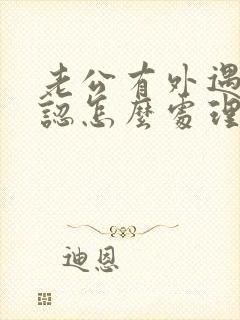 老公有外遇
認怎麼處理
迪恩